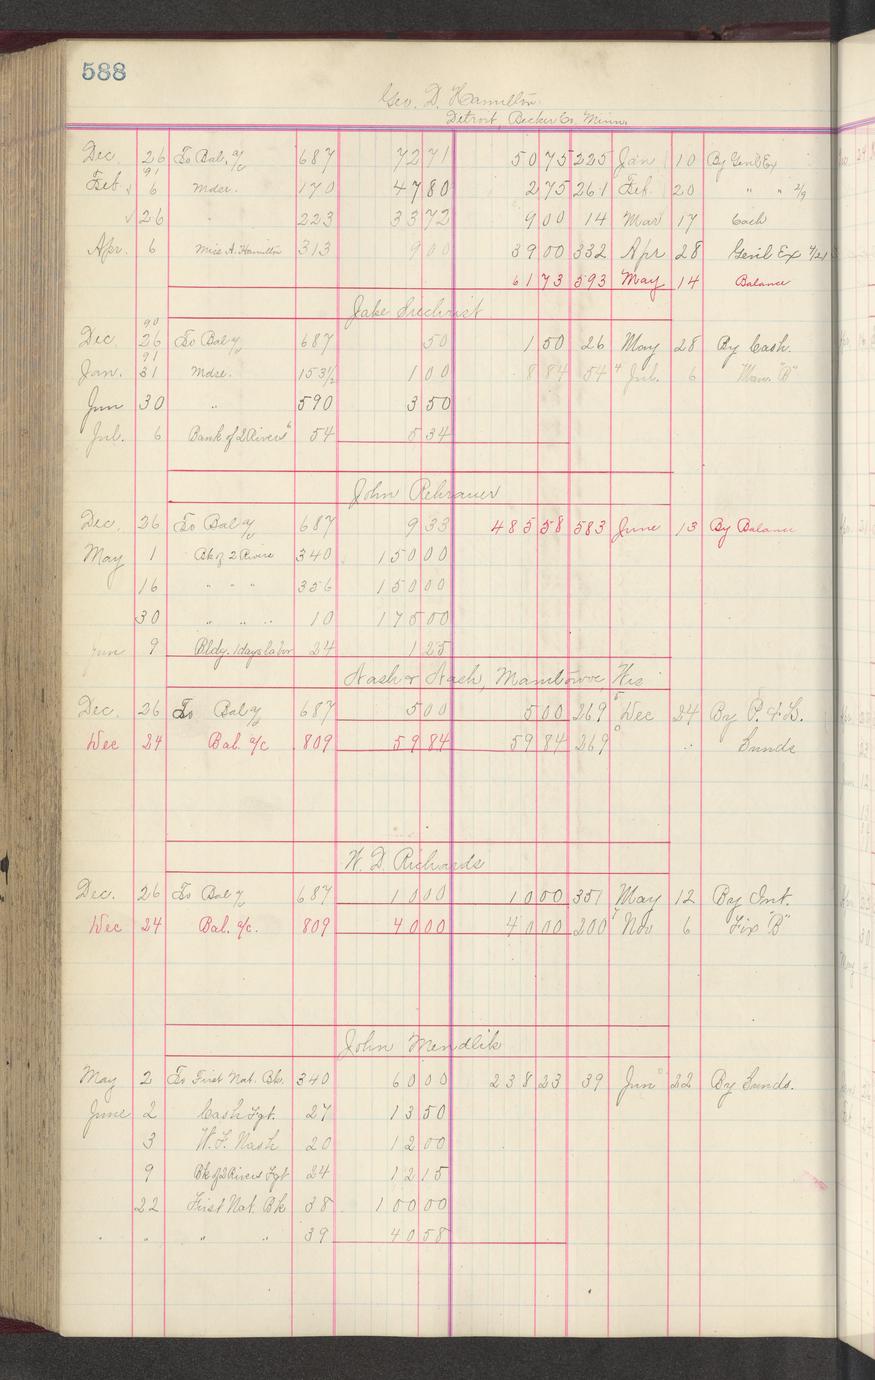 588
Geo. D. Hamilton.
Detroit, Becker Co. Minn.
Dec. 26 To Bal. a/c 687 72 71 50 75 225 Jan 10 By Genl Ex
91
Feb. 6 Mdse. 170 47 80 2 75 261 Feb. 20 " " 2/9
√ 26 " 223 33 72 9 00 14 Mar 17 Cash
Apr. 6 Miss A. Hamilton 313 9 00 39 00 332 Apr 28 Genl Ex 4/21
61 73 593 May 14 Balance
Jake
90
Dec. 26 To Bal a/c 687 50 1 50 26 May 28 By Cash.
91
Jan. 31 Mdse. 153 1/2 1 00 8 84 54 Jul. 6 "B"
Jun 30 " 590 3 50
Jul. 6 Bank of 2 Rivers 54 5 34
John Rehrauer
Dec. 26 To Bal a/c 687 9 33 485 58 583 June 13 By Balance
May 1 Bk of 2 Rivers 340 150 00
16 " " " 356 150 00
30 " " " 10 175 00
Jun 9 Bldg. 1 days labor 24 1 25
Nash & Nash, Manitowoc, Wis
Dec. 26 To Bal a/c 687 5 00 5 00 269 Dec 24 By P. & L.
Dec 24 Bal. a/c 809 59 84 59 84 269 " Sunds
W. D. Richards
Dec. 26 To Bal a/c 687 10 00 10 00 351 May 12 By Int.
Dec 24 Bal. a/c. 809 40 00 40 00 200 Nov 6 Fix "B"
John Mendlik
May 2 To First Nat. Bk. 340 60 00 238 23 39 Jun 22 By Sunds.
June 2 Cash Fgt. 27 13 50
3 W. F. Nash 20 12 00
9 Bk of 2 Rivers Fgt 24 12 15
22 First Nat. Bk 38 100 00
" " " " 39 40 58